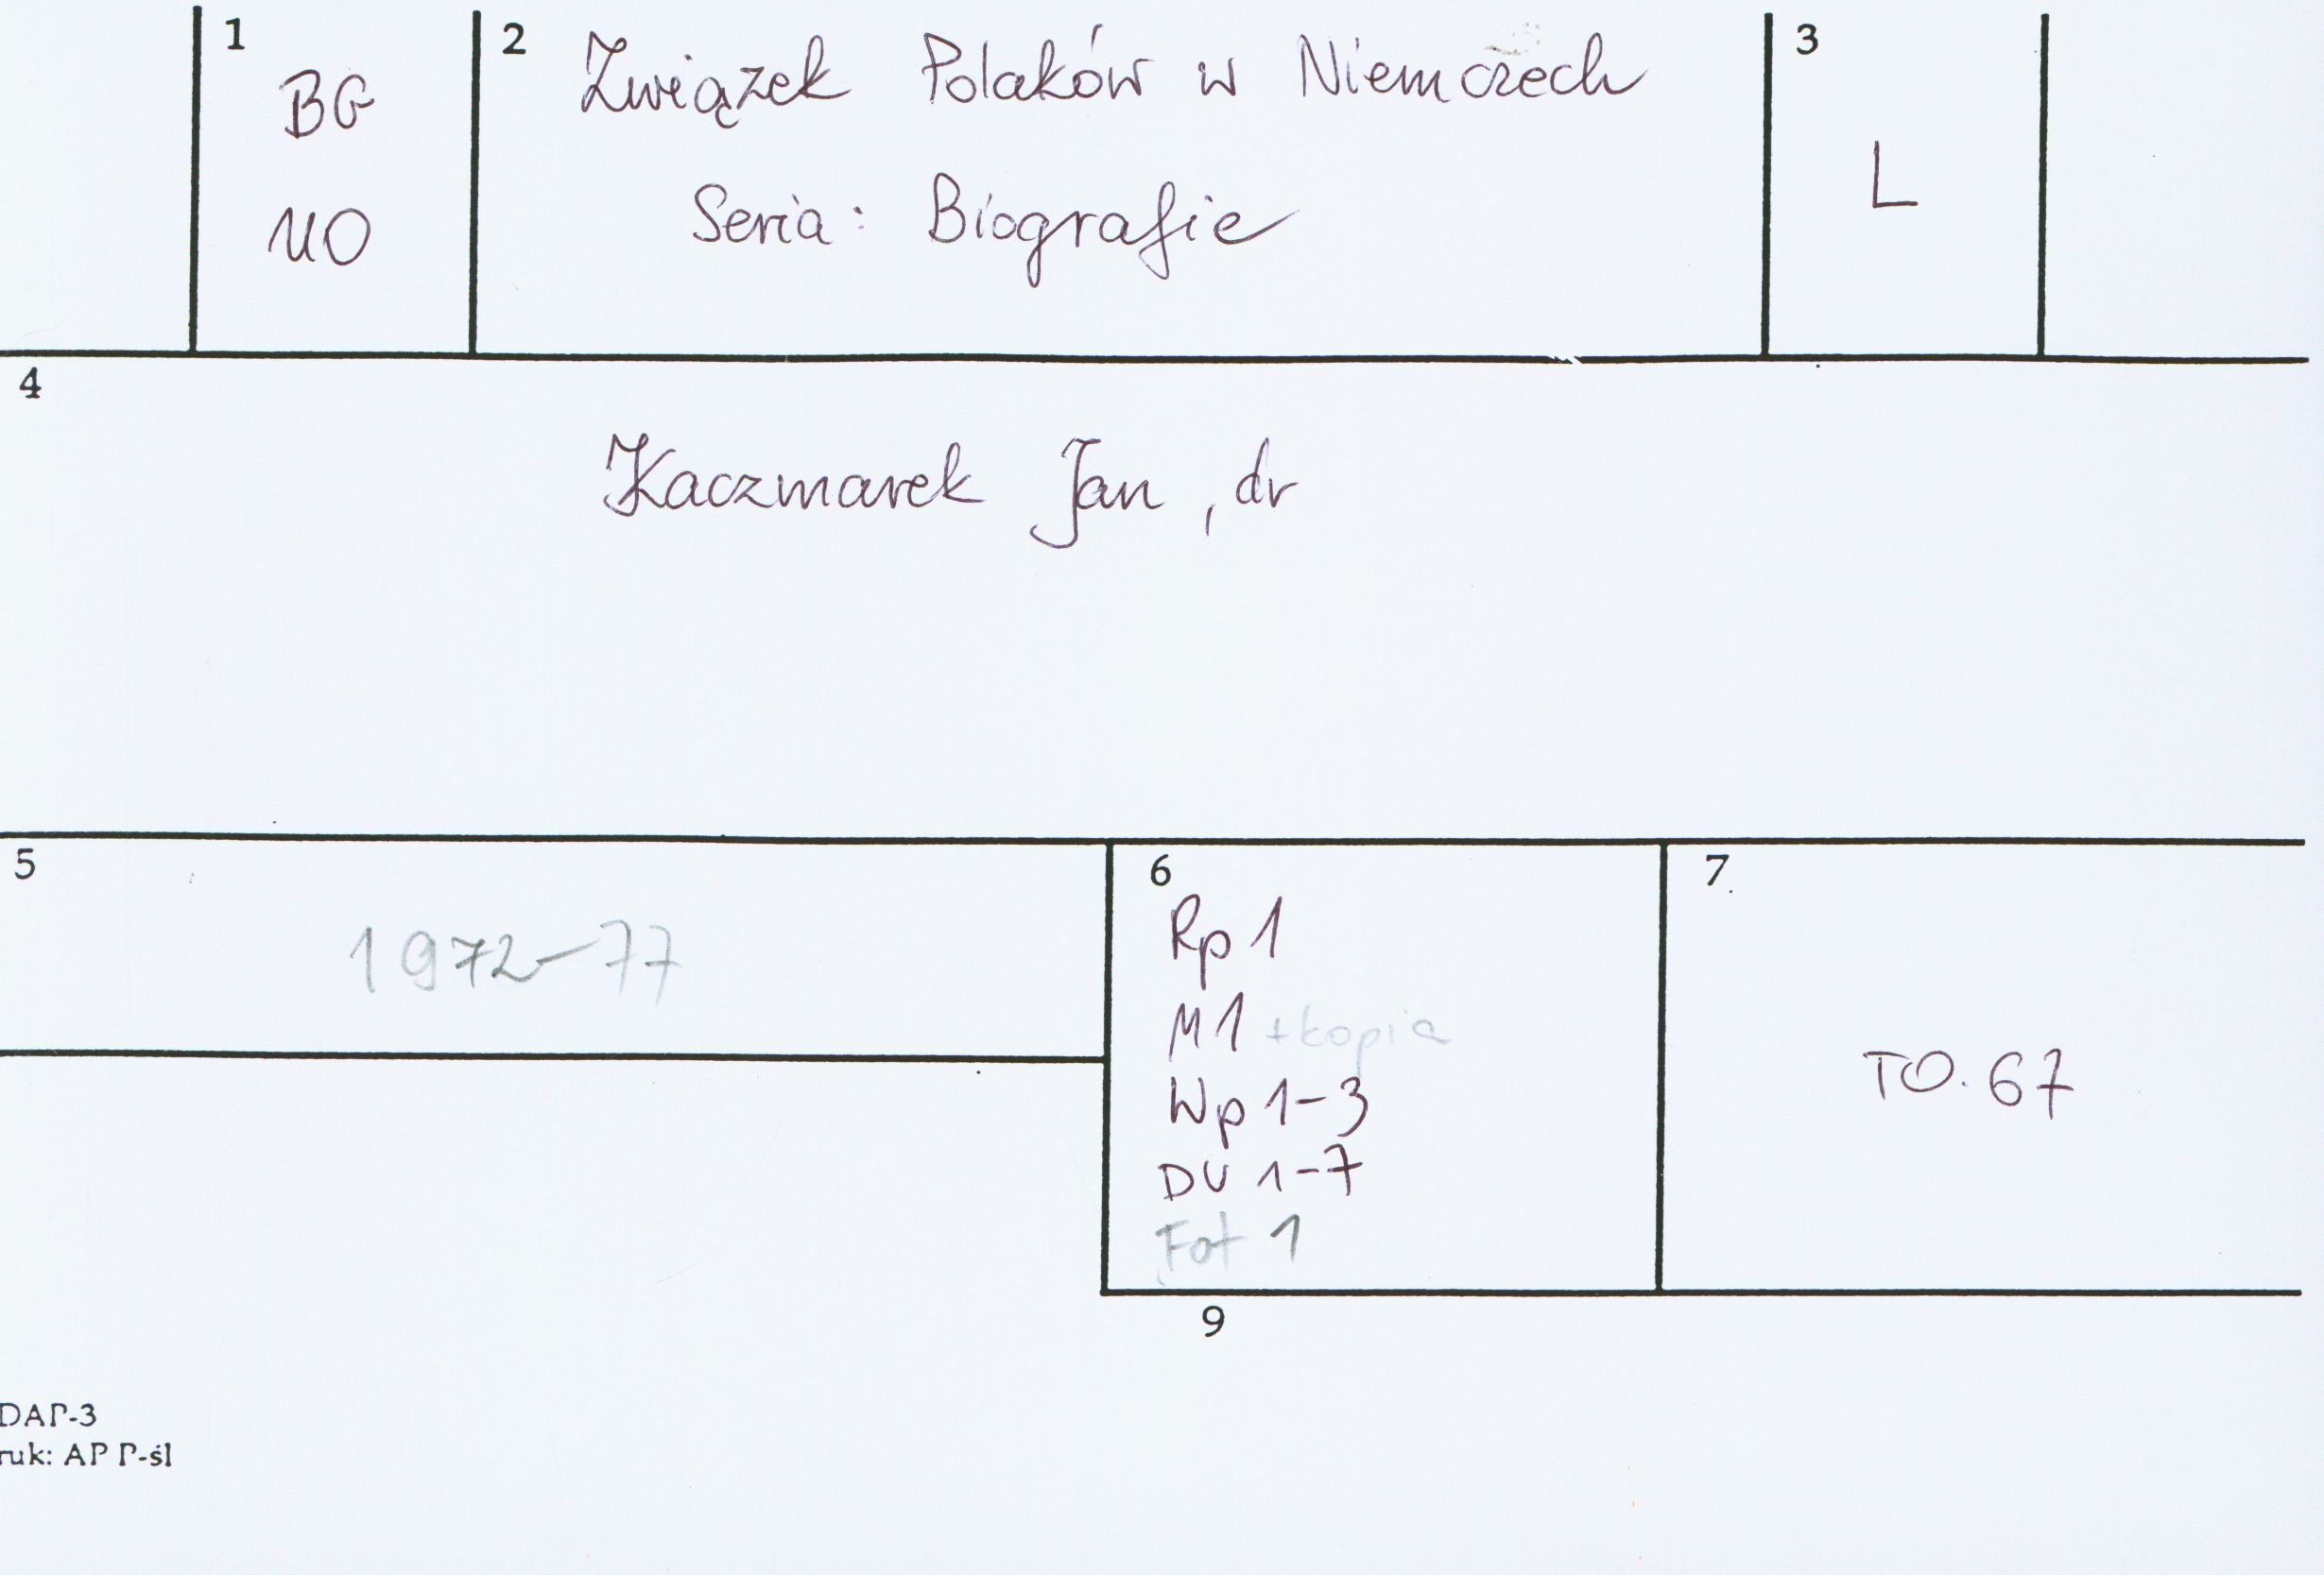 1
BG
UO
2
Związek Polaków w Niemczech
Seria: Biografie
3
L
4
Kaczmarek Jan, dr
5
1972-77
6
Rp 1
M 1 + kopia
Wp 1-3
DU 1-7
Fot 1
7
TO. 67
9
DAP-3
ruk: AP P-śl